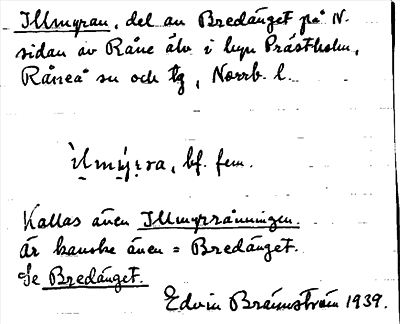 Illmyran, del av Bredänget på N.
sidan av Råne älv i byn Prästholm,
Råneå sn och tg, Norrb. l.
ìlmỵ́ra, bf. fem.
Kallas även Illmyrränningen.
Är kanske även = Bredänget.
Se Bredänget.
Edvin Brännström 1939.